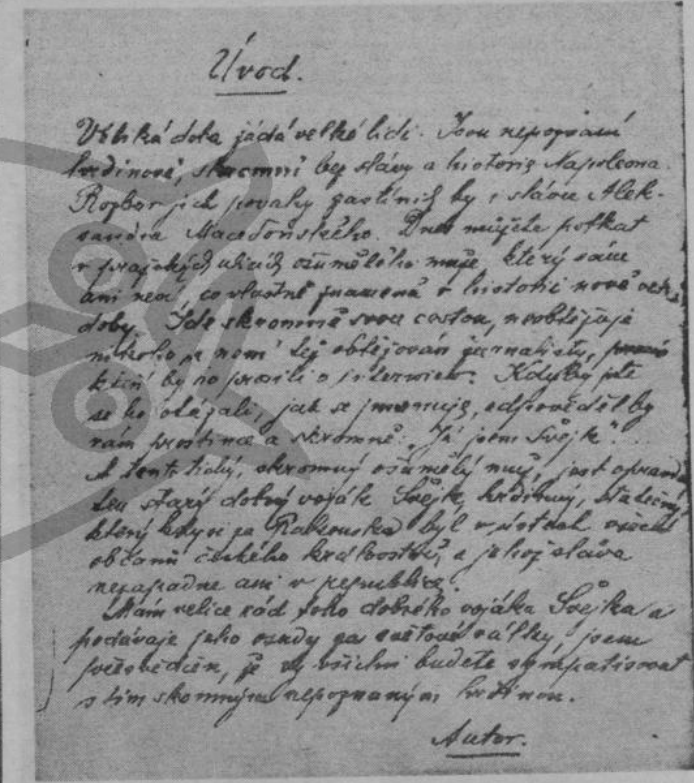 Úvod.
Veliká doba žádá velké lidi. Jsou nepoznaní
hrdinové, skromní bez slávy a historie Napoleona.
Rozbor jich povahy zastínil by i slávu Alek-
sandra Macedonského. Dnes můžete potkat
v pražských ulicích ošumělého muže, který sám
ani neví, co vlastně znamená v historii nové velké
doby. Jde skromně svou cestou, neobtěžuje
nikoho a není též obtěžován žurnalisty,
kteří by ho prosili o interview. Kdyby jste
se ho otázali, jak se jmenuje, odpověděl by
vám prostince a skromně: „Já jsem Švejk“...
A tento tichý, skromný ošumělý muž, jest opravdu
ten starý dobrý voják Švejk, hrdinný, statečný
který kdysi za Rakouska byl v ústech všech
občanů českého království, a jehož sláva
nezapadne ani v republice.
Mám velice rád toho dobrého vojáka Švejka a
podávaje jeho osudy za světové války, jsem
přesvědčen, že vy všichni budete sympatisovat
s tím skomným nepoznaným hrdinou.
Autor.